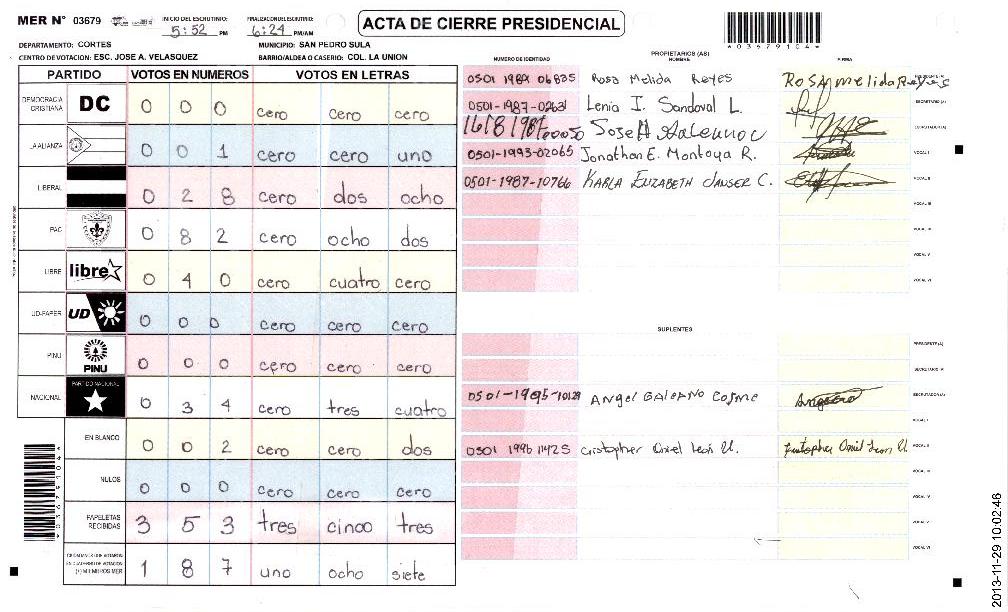 MER N° 03679
INICIO DEL ESCRUTINIO: 5:52 PM
FINALIZACION DEL ESCRUTINIO: 6:24 PM/AM
ACTA DE CIERRE PRESIDENCIAL
03679104
DEPARTAMENTO: CORTES
MUNICIPIO: SAN PEDRO SULA
CENTRO DE VOTACION: ESC. JOSE A. VELASQUEZ
BARRIO/ALDEA O CASERIO: COL. LA UNION
PARTIDO VOTOS EN NUMEROS VOTOS EN LETRAS
DEMOCRACIA CRISTIANA DC 0 0 0 cero cero cero
LA ALIANZA 0 0 1 cero cero uno
LIBERAL 0 2 8 cero dos ocho
PAC 0 8 2 cero ocho dos
LIBRE libre 0 4 0 cero cuatro cero
UD-FAPER UD 0 0 0 cero cero cero
PINU PINU 0 0 0 cero cero cero
NACIONAL PARTIDO NACIONAL 0 3 4 cero tres cuatro
EN BLANCO 0 0 2 cero cero dos
NULOS 0 0 0 cero cero cero
PAPELETAS RECIBIDAS 3 5 3 tres cinco tres
1 8 7 uno ocho siete
NUMERO DE IDENTIDAD PROPIETARIOS (AS) NOMBRE FIRMA
0501 1989 06835 Rosa Melida Reyes Rosa melida Reyes
0501-1987-02631 Lenia I. Sandoval L. SECRETARIO (A)
ESCRUTADOR (A)
0501-1993-02065 Jonathan E. Montoya R. VOCAL I
0501-1987-10766 KARLA ELIZABETH JANSER C. VOCAL II
VOCAL III
VOCAL IV
VOCAL V
VOCAL VI
SUPLENTES
PRESIDENTE (A)
SECRETARIO (A)
0501-1985-10129 ANGEL GALEANO COSME ESCRUTADOR (A)
VOCAL I
0501 1996 11425 Cristopher Oniel León U. VOCAL II
VOCAL III
VOCAL IV
VOCAL V
VOCAL VI
2013-11-29 10:02:46